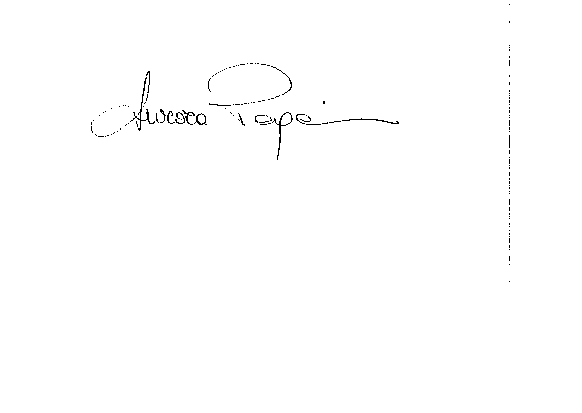 Aurora Papa